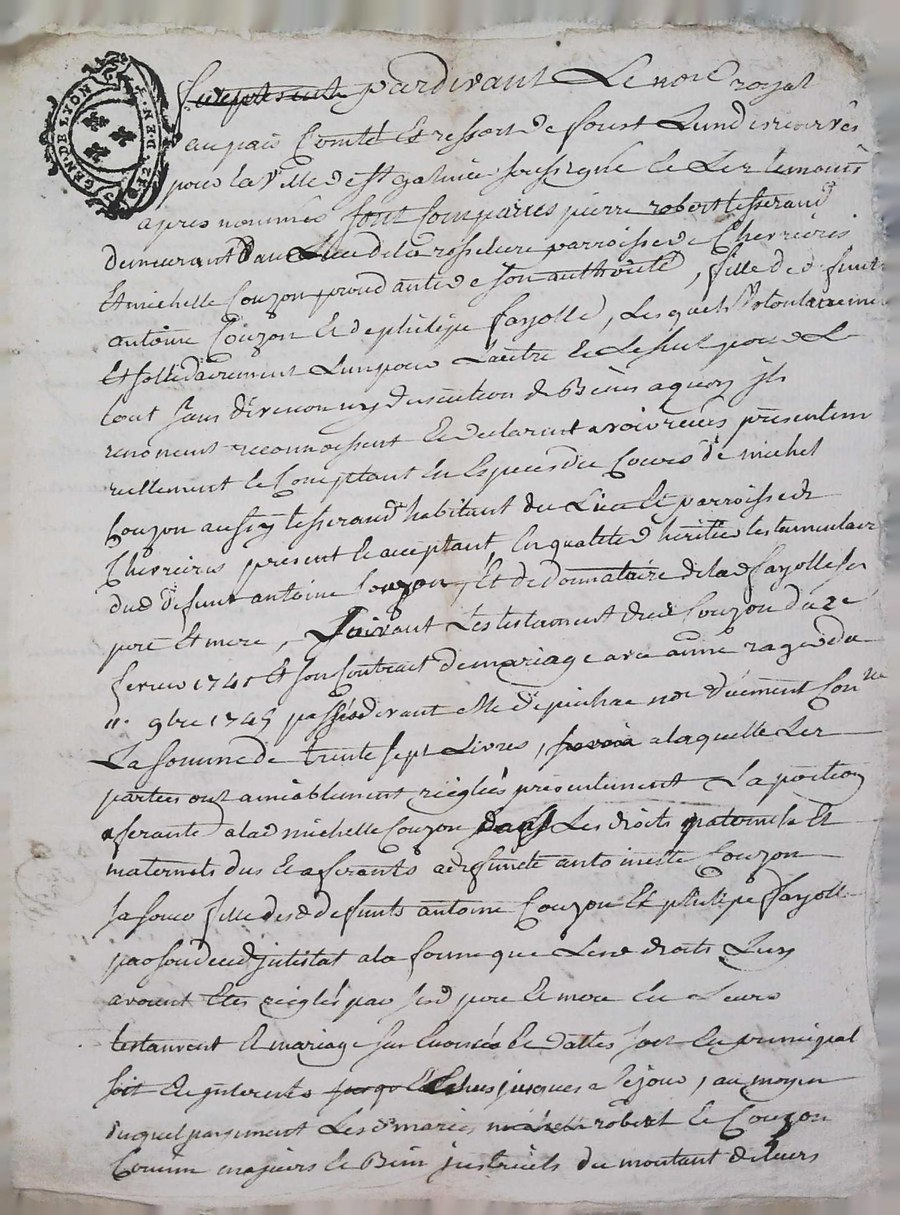 GEN. DE LYON
pardevant Le nore royal
au païs Comté Et ressort de forest Lun des reservés
pour la Ville de st galmier soussigné Et Les temoins
apres nommés sont Comparus pierre robert tisserand
demeurant au Lieu de la rosseliere parroisse de Chevrieres
Et michelle Couzon procedante de son authorité, fille de defunt
antoine Couzon Et de philippe fayolle, Lesquels Volontairement
Et sollidairement Lun pour Lautre Et Le seul pour Le
tout sans division ny discution de Biens a quoy ils
renoncent reconnoissent Et declarent avoir receus presentem
reellement Et Comptant En Especes du Cours de michel
Couzon aussy tisserand habitant du Lieu Et parroisse de
Chevrieres present Et acceptant En qualité d heritier testamentaire
dud defunt antoine Couzon, Et de donnataire de lad fayolle ses
pere Et mere, suivant Les testament dud Couzon du 2e
fevrier 1741 Et son Contract de mariage avec anne rageydu
11e 9bre 1745 passés devant Me depinhac nore duement Con
La somme de trente sept Livres, a laquelle Les
parties ont amiablement reiglés presentement La portion
aferante a lad michelle Couzon dans Les droits paternels Et
maternels dus Et aferants a defunte antoinette Couzon
sa soeur fille desd defunts antoine Couzon Et philipe fayolle
par son deced intestat a la forme que Lesd droits Luy
avoient Etes reiglés par sesd pere Et mere En Leurs
testament Et mariage sus Enoncés Et dattes soit En principal
soit En interests Echus jusques a ce jour, au moyen
duquel payement Lesd mariés robert Et Couzon
Comme majeurs Et Bien instruits du montant de Leurs